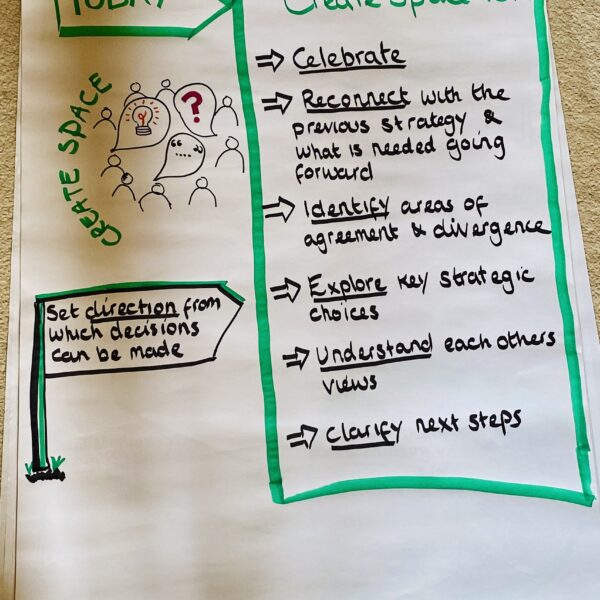 TODAY
Create space for
CREATE SPACE
?
Set direction from
which decisions
can be made
⇒ Celebrate
⇒ Reconnect with the
previous strategy &
what is needed going
forward
⇒ Identify areas of
agreement & divergence
⇒ Explore key strategic
choices
⇒ Understand each others
views
⇒ Clarify next steps